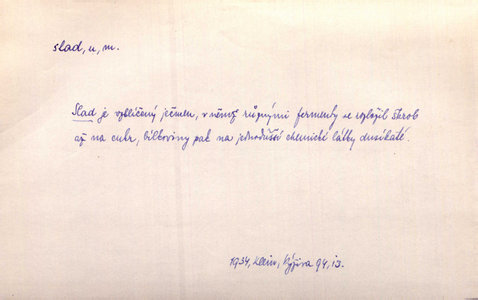 slad, u, m.
Slad je vyklíčený ječmen, v němž různými fermenty se vyložil škrob
až na cukr, bílkoviny pak na jednodušší chemické látky dusíkaté.
1934, Klein, Výživa 94, i3.